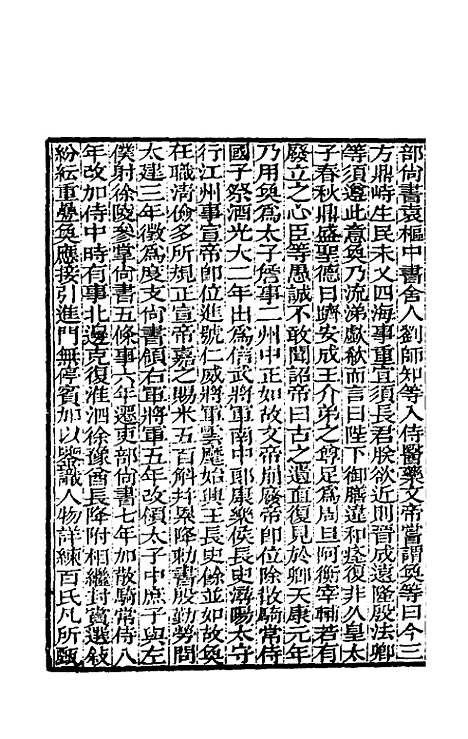 部尚書袁樞中書舍人劉師知等入侍醫藥文帝嘗謂奐等曰今三
方鼎峙生民未乂四海事重宜須長君朕欲近則晉成遠隆殷法卿
等須遵此意奐乃流涕歔欷而言曰陛下御膳違和痊復非久皇太
子春秋鼎盛聖德日躋安成王介弟之尊足爲周旦阿衡宰輔若有
廢立之心臣等愚誠不敢聞詔帝曰古之遺直復見於卿天康元年
乃用奐爲太子詹事二州中正如故文帝崩廢帝即位除散騎常侍
國子祭酒光大二年出爲信武將軍南中郎康樂侯長史潯陽太守
行江州事宣帝即位進號仁威將軍雲麾始興王長史餘並如故奐
在職清儉多所規正宣帝嘉之賜米五百斛并累降勅書殷勤勞問
太建三年徵爲度支尚書領右軍將軍五年改領太子中庶子與左
僕射徐陵參掌尚書五條事六年遷吏部尚書七年加散騎常侍八
年改加侍中時有事北邊克復淮泗徐豫酋長降附相繼封賞選敍
紛紜重疊奐應接引進門無停賓加以鑒識人物詳練百氏凡所甄